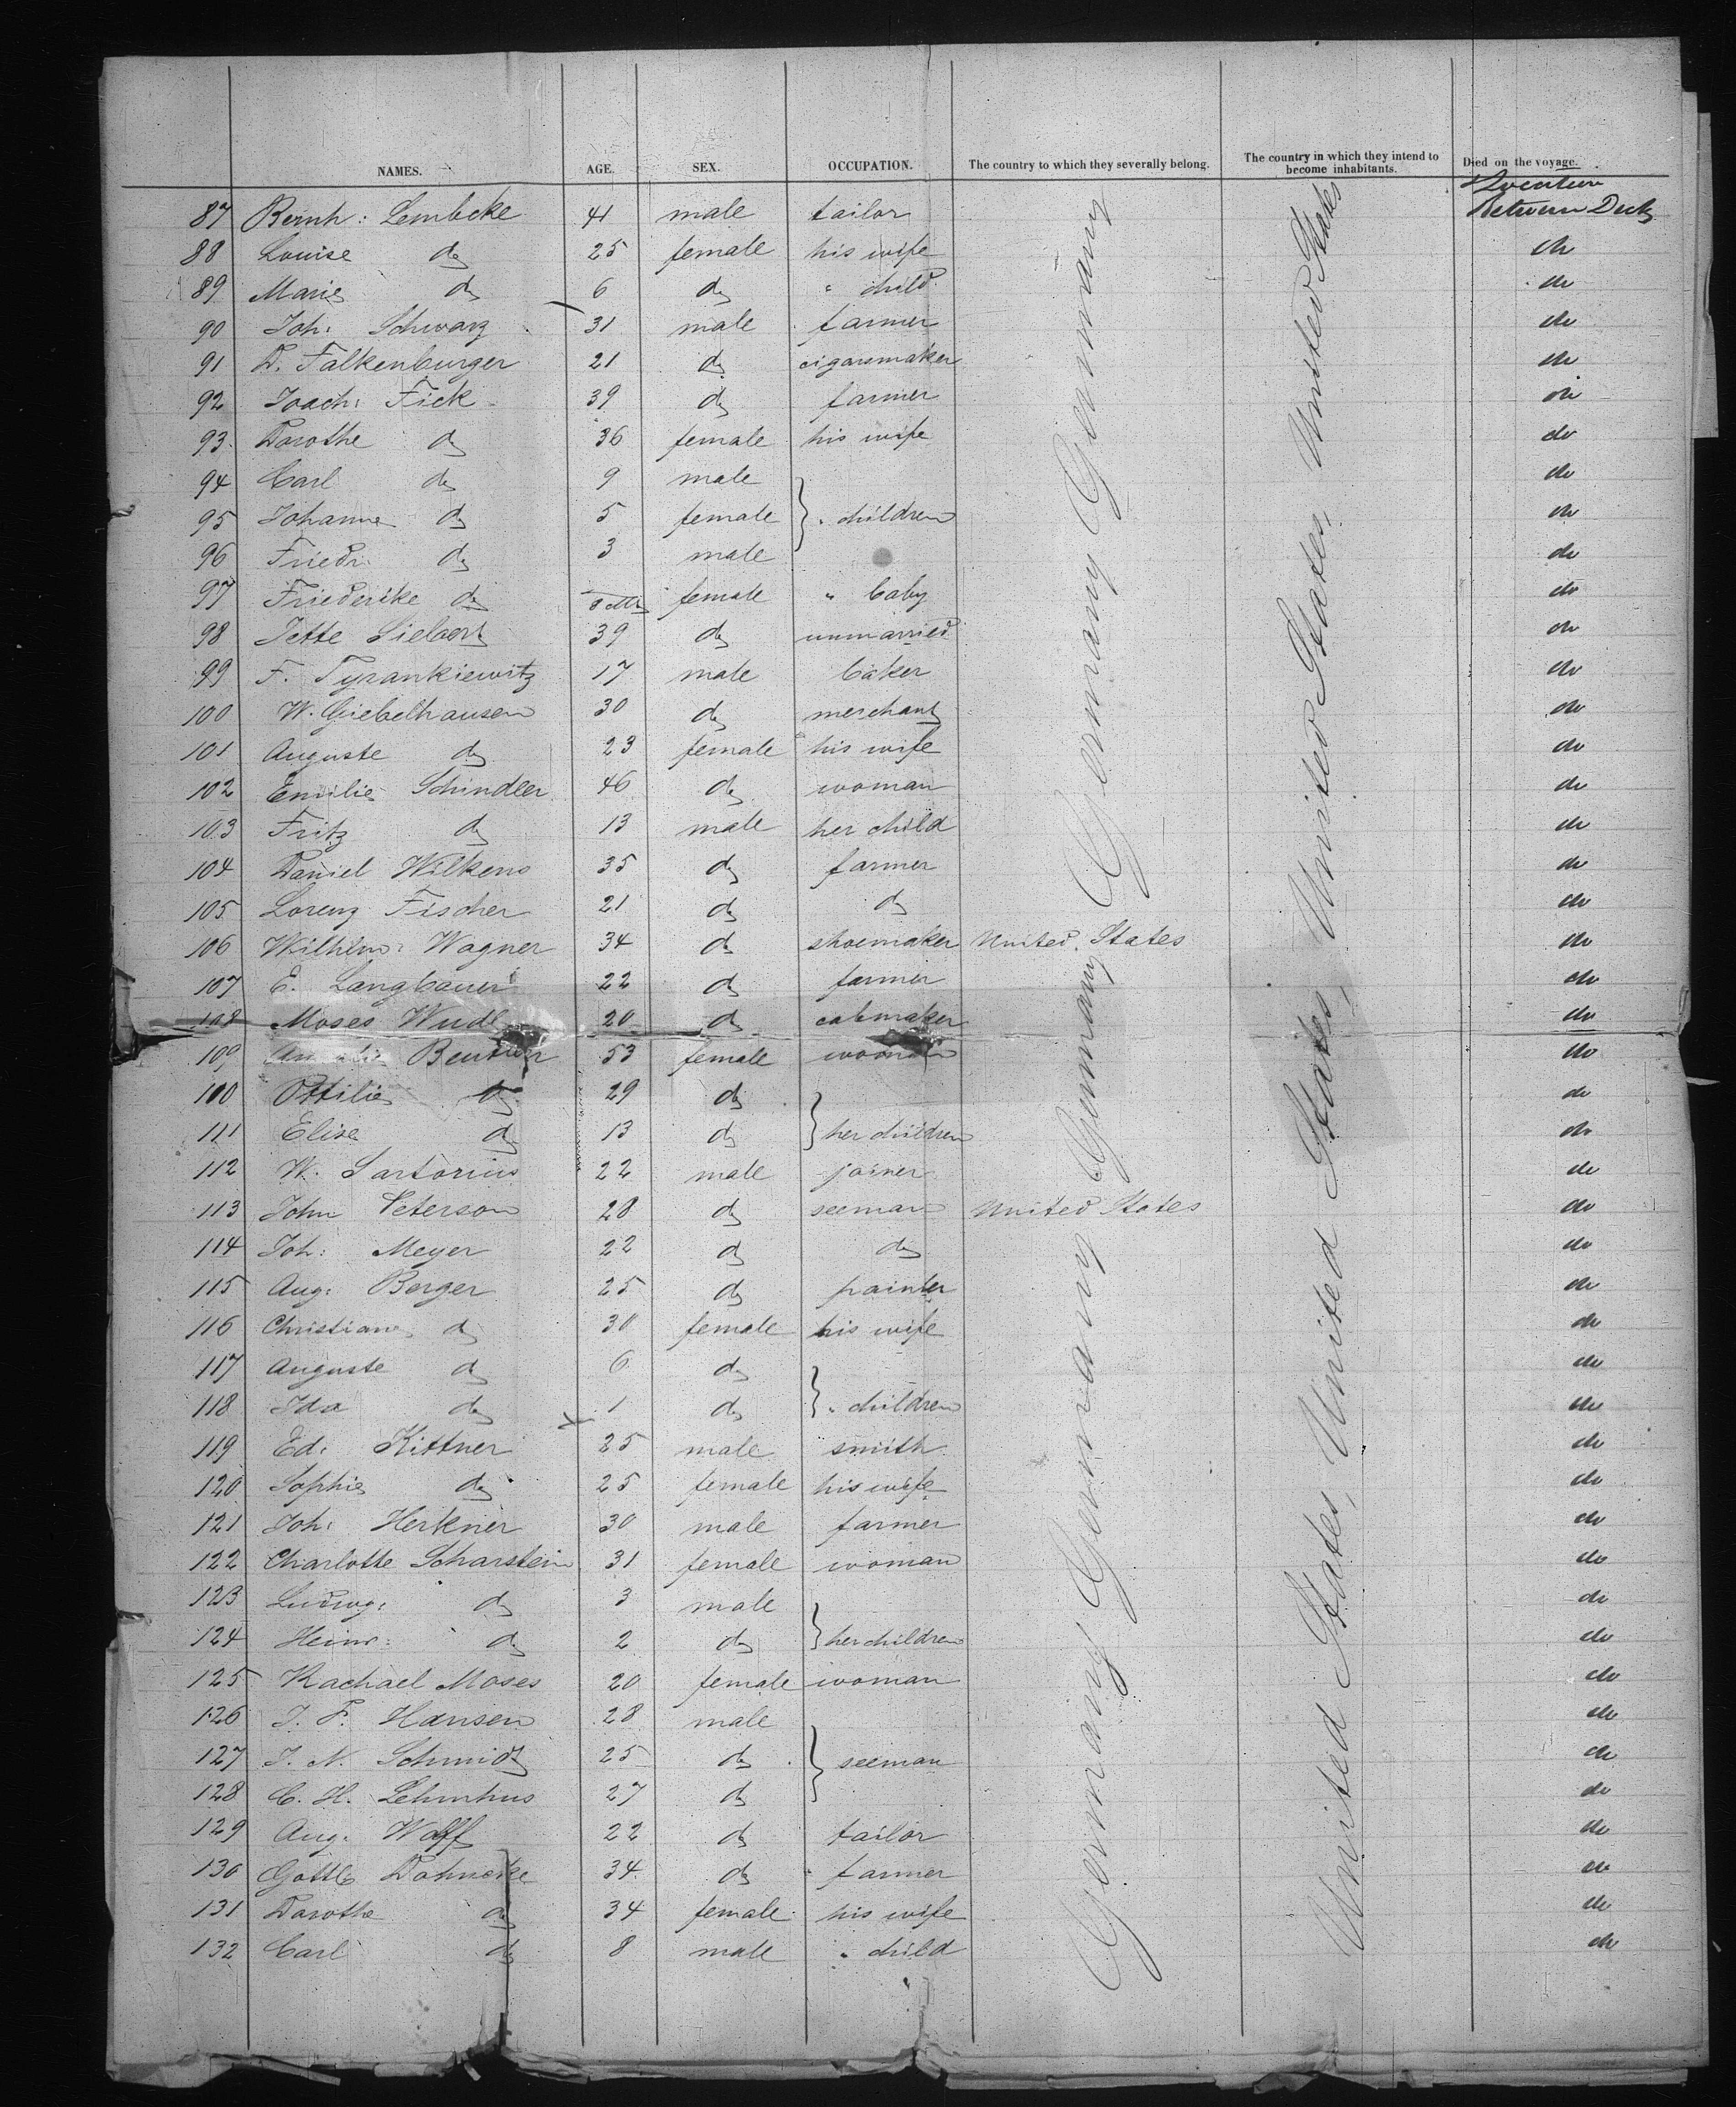 NAMES. AGE. SEX. OCCUPATION. The country to which they severally belong. The country in which they intend to become inhabitants. Died on the voyage.
Location
87 Bernh: Lembcke 41 male tailor Between Deck
88 Louise do 25 female his wife do
89 Marie do 6 do " child do
90 Joh: Schwarz 31 male farmer do
91 D. Falkenburger 21 do cigaremaker do
92 Joach: Fick 39 do farmer do
93 Dorothe do 36 female his wife do
94 Carl do 9 male do
95 Johanna do 5 female } " children do
96 Friedr: do 3 male do
97 Friederike do 8 Mt female " baby do
98 Jette Siebert 39 do unmarried do
99 F. Tyrankiewitz 17 male baker do
100 W. Giebelhausen 30 do merchant do
101 Auguste do 23 female his wife do
102 Emilie Schindler 46 do woman do
103 Fritz do 13 male her child do
104 Daniel Wilkens 35 do farmer do
105 Lorenz Fischer 21 do do do
106 Wilhlm: Wagner 34 do shoemaker United States do
107 E. Langbauer 22 do farmer do
108 Moses Wudl 20 do cabmaker do
109 53 female woman do
100 Ottilie do 29 do do
111 Elise do 13 do } her children do
112 W. Sartorius 22 male joiner do
113 John Peterson 28 do seeman United States do
114 Joh: Meyer 22 do do do
115 Aug: Berger 25 do painter do
116 Christiane do 30 female his wife do
117 Auguste do 6 do do
118 Ida do 1 do } " children do
119 Ed: Kittner 25 male smith do
120 Sophie do 25 female his wife do
121 Joh: Herkner 30 male farmer do
122 Charlotte Scharstein 31 female woman do
123 Ludwg: do 3 male do
124 Heinr: do 2 do } her children do
125 Rachael Moses 20 female woman do
126 J. P. Hansen 28 male do
127 J. N. Schmidt 25 do } seeman do
128 C. H. Lehmhus 27 do do
129 Aug: Wolff 22 do tailor do
130 Gottlb Dahncke 34 do farmer do
131 Dorothe do 34 female his wife do
132 Carl do 8 male " child do
Germany Germany Germany Germany Germany Germany
United States, United States, United States, United States, United States